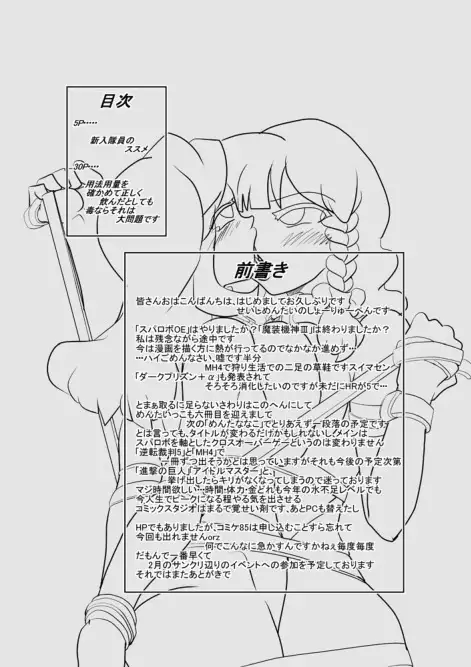 目次
5P・・・・・
新入隊員の
ススメ
30P・・・・
用法用量を
確かめて正しく
飲んだとしても
毒ならそれは
大問題です
前書き
皆さんおはこんばんちは、はじめましてお久しぶりです
せいしめんたいのしょーりゅーへんです
「スパロボOE」はやりましたか？「魔装機神Ⅲ」は終わりましたか？
私は残念ながら途中です
今は漫画を描く方に熱が行ってるのでなかなか進めず…
…ハイごめんなさい、嘘です半分
MH4で狩り生活での二足の草鞋ですスイマセン
「ダークプリズン＋α」も発表されて
そろそろ消化したいのですが未だにHRが5で…
とまぁ取るに足らないさわりはこのへんにして
めんたいっこも六冊目を迎えまして
次の「めんたななこ」でとりあえず一段落の予定です
とは言っても、タイトルが変わるだけかもしれないし、メインは
スパロボを軸としたクロスオーバーゲーというのは変わりません
「逆転裁判5」と「MH4」で
一冊ずつ出そうかとは思っていますがそれも今後の予定次第
「進撃の巨人」「アイドルマスター」と、
挙げ出したらキリがなくなってしまうので迷っております
マジ時間欲しい…時間・体力・金どれも今年の水不足レベルでも
今人生でピークになる程やる気を出させる
コミックスタジオはまるで覚せい剤です、あとPCも替えたし
HPでもありましたが、コミケ85は申し込むことすら忘れて
今回も出れませんorz
何でこんなに急かすんですかねぇ毎度毎度
だもんで一番早くて
2月のサンクリ辺りのイベントへの参加を予定しております
それではまたあとがきで